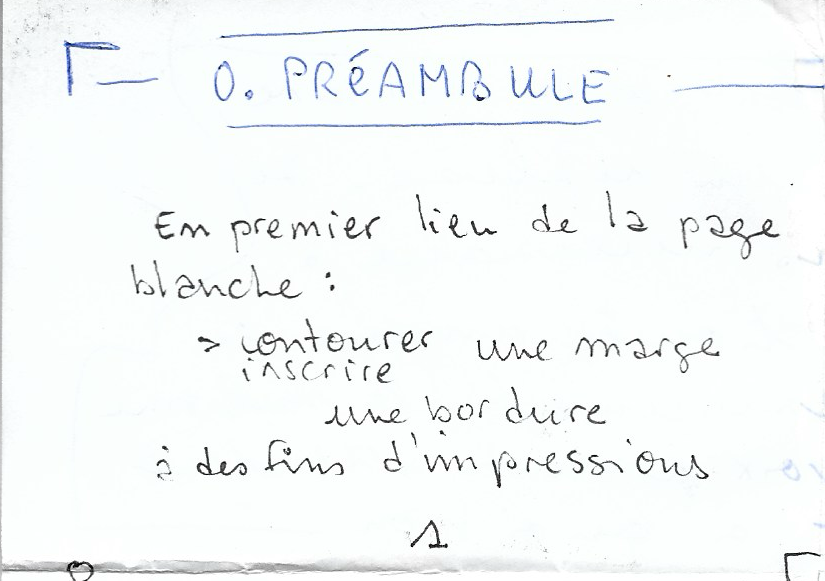 0. PRÉAMBULE
En premier lieu de la page
blanche :
> contourer une marge
inscrire
une bordure
à des fins d'impressions
1